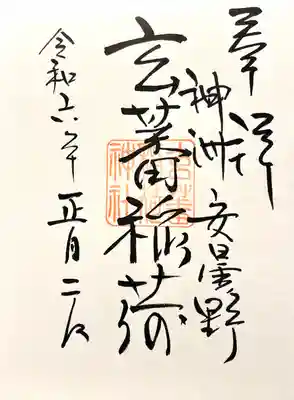 奉拝
神洲
安曇野
玄蕃稲荷
神社
令和六年正月二日